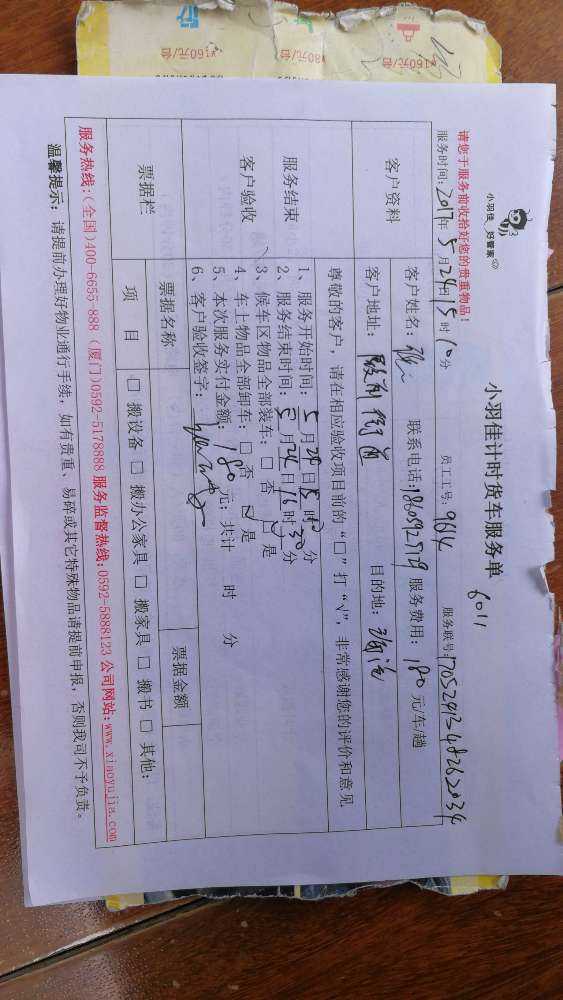 小羽佳 好管家
小羽佳计时货车服务单
6011
请您于服务前收拾好您的贵重物品!
服务时间: 2017年 5月24日15时10分 员工工号: 9614 服务联号: 1705241348262034
客户资料
客户姓名: 联系电话: 服务费用: 180元/车/趟
客户地址: 目的地:
尊敬的客户,请在相应验收项目前的“□”打“√”,非常感谢您的评价和意见
服务结束
客户验收
1、服务开始时间: 5月24日15时10分
2、服务结束时间: 5月24日16时30分
3、候车区物品全部装车: □ 否 ☑ 是
4、车上物品全部卸车: □ 否 ☑ 是
5、本次服务实付金额: 180元; 共计 时 分
6、客户验收签字:
票据栏
票据名称 票据金额
项 目 □ 搬设备 □ 搬办公家具 □ 搬家具 □ 搬书 □ 其他:
服务热线:(全国)400-6655-888 (厦门)0592-5178888 服务监督热线:0592-5888123 公司网站:www.xiaoyujia.com
温馨提示: 请提前办理好物业通行手续,如有贵重、易碎或其它特殊物品请提前申报,否则我司不予负责。
¥160元/台
¥80元/台
¥160元/台